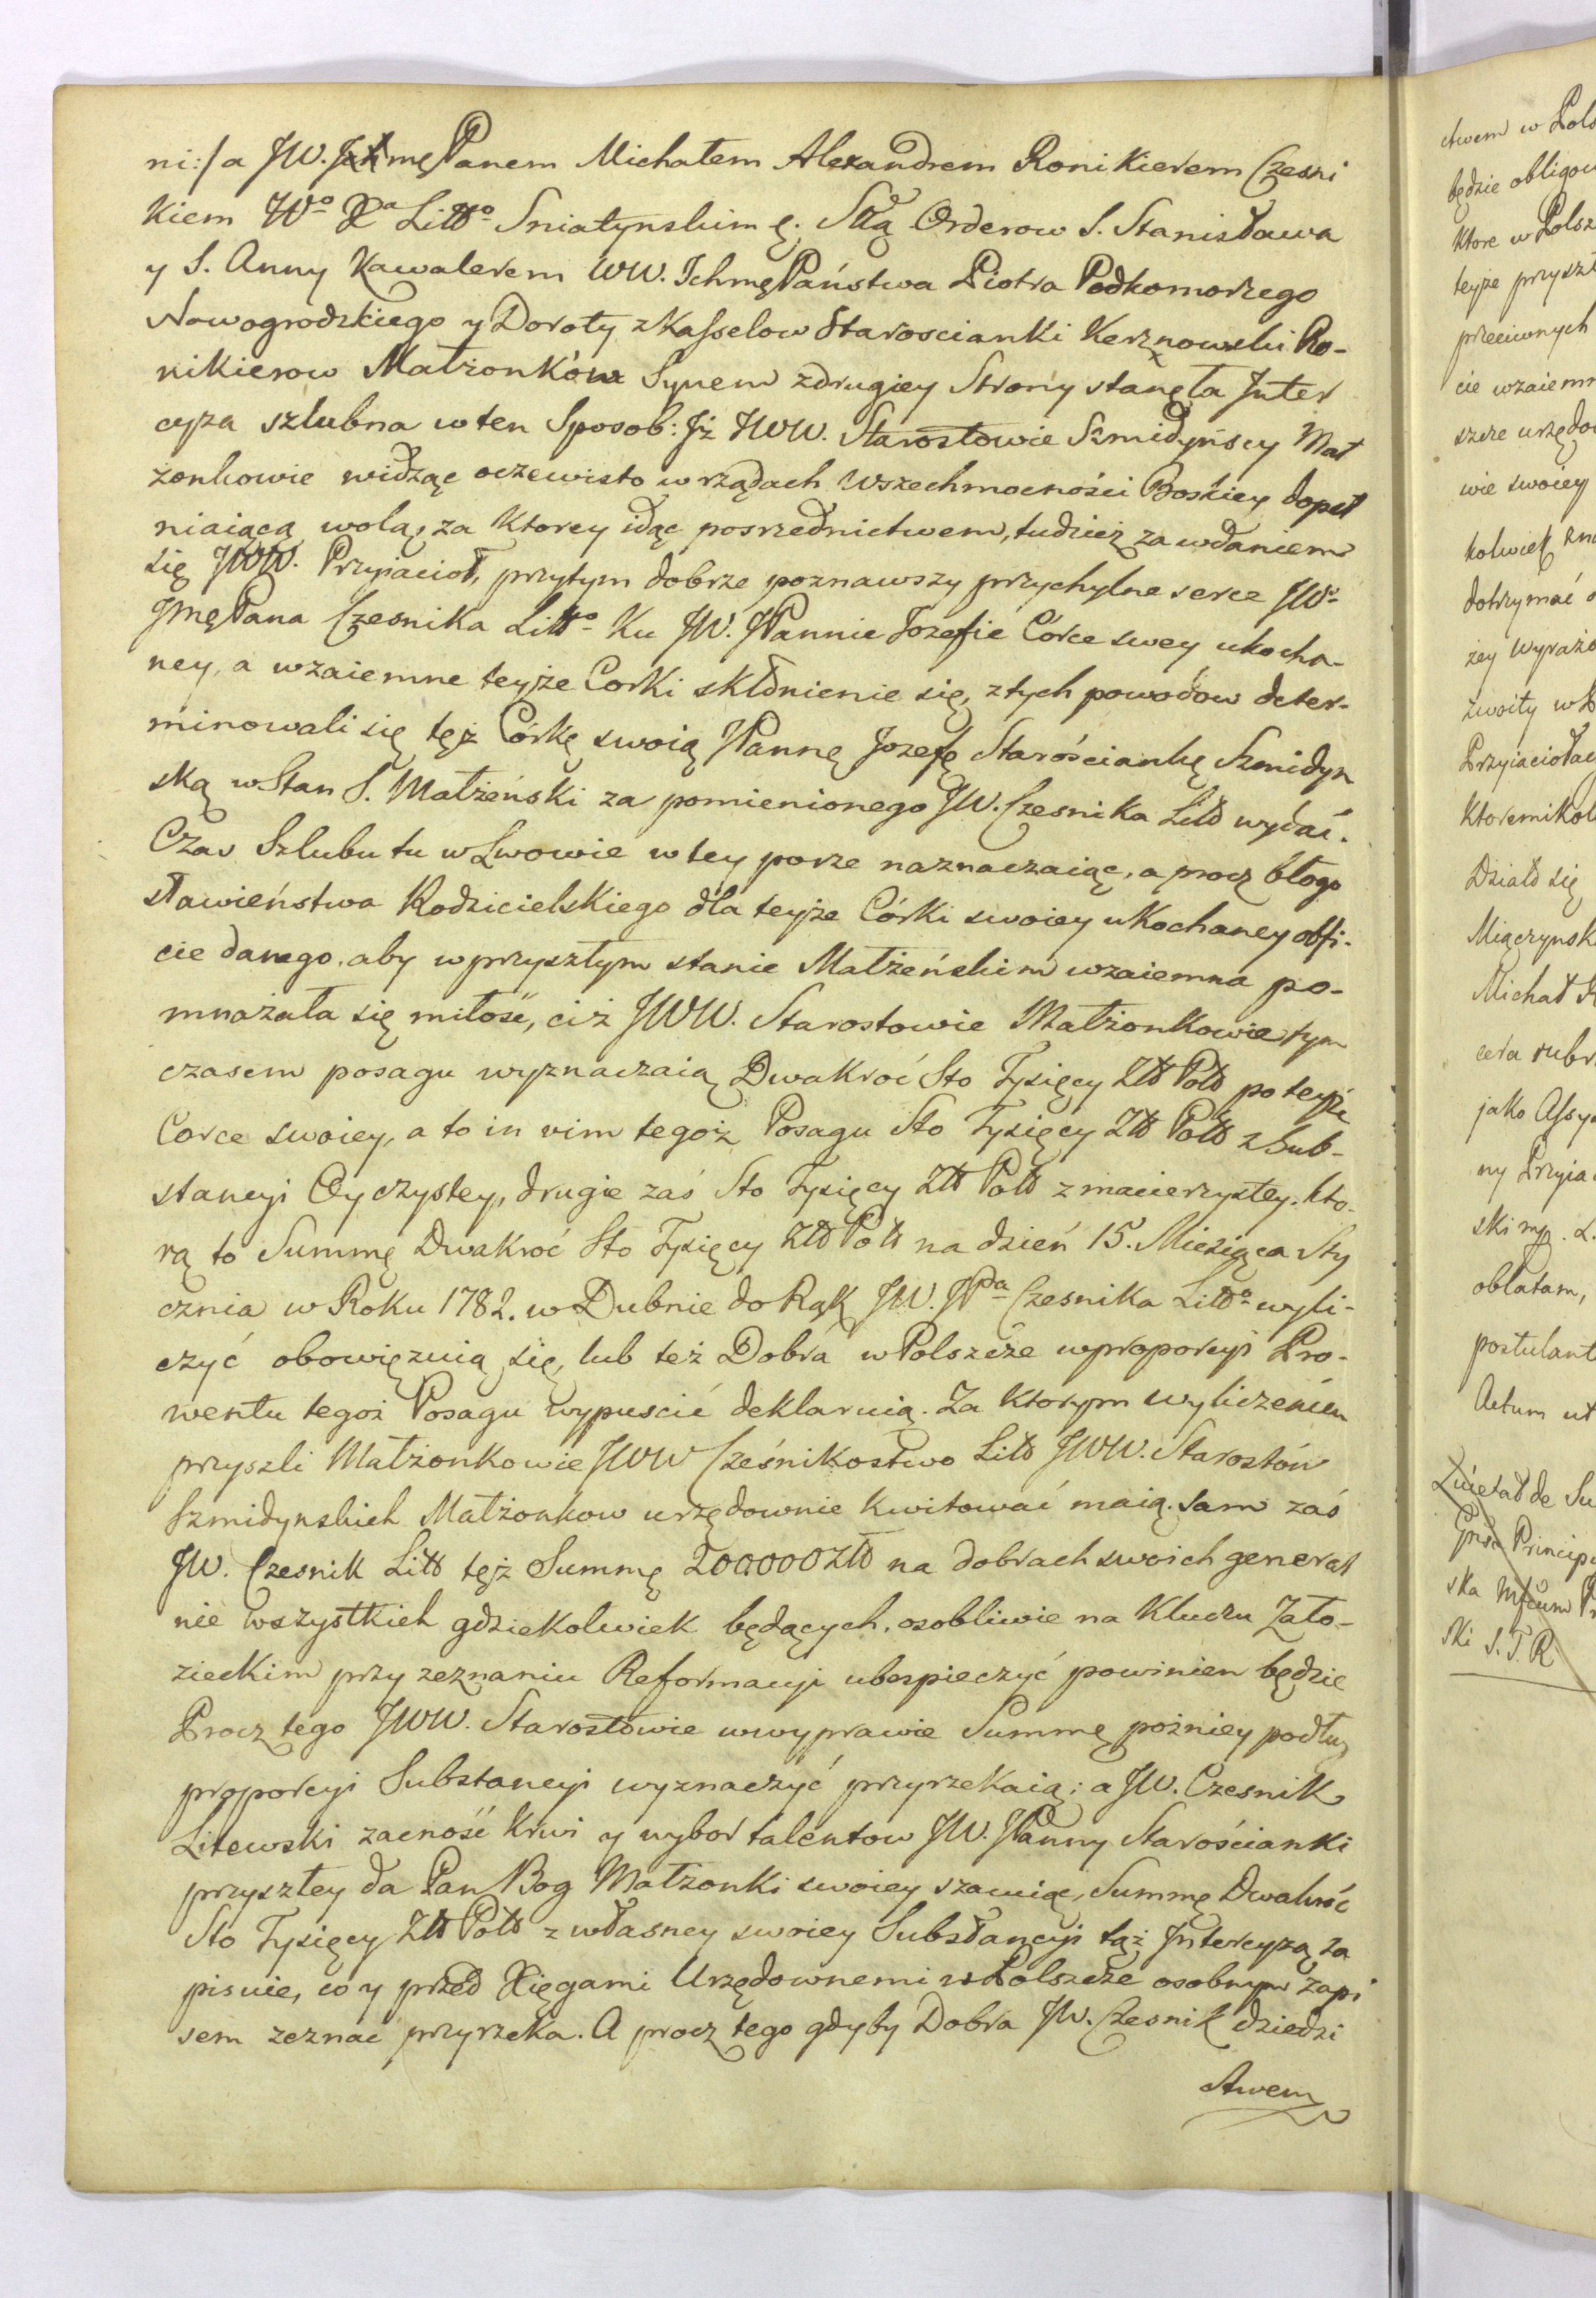 ni:/ a JW. Panem Michałem Alexandrem Ronikierem Czesni
kiem Wo Xa Litto Sniatynskim &. Sttą Orderow S. Stanisława
y S. Anny Kawalerem WW. Ichmę Państwa Piotra Podkomorzego
Nowogrodzkiego y Doroty z Kasselow Starościanki Kerznowski Ro-
nikierow Małżonków Synem z drugiey Strony stanęła Inter
cyza szlubna w ten Sposob: Iż JWW. Starostowie Szmidyńscy Mał
żonkowie widząc oczewisto w rządach Wszechmocności Boskiey dopeł
niaiącą wolą, za Ktorey idąc posrzednictwem, tudzież za wdaniem
się JWW. Przyiacioł, przytym dobrze poznawszy przychylne serce JWo
Jmę Pana Czesnika Litto Ku JW. JPannie Jozefie Córce swey ukocha-
ney, a wzaiemne teyże Corki skłonienie się, z tych powodow deter-
minowali się tęż Córkę swoią JPannę Jozefę Starościankę Szmidyn
ską w Stan S. Małżeński za pomienionego JW. Czesnika Litt wydać.
Czas Szlubu tu w Lwowie w tey porze naznaczaiąc, a procz błogo
sławieństwa Rodzicielskiego dla teyże Córki swoiey ukochaney obfi-
cie danego, aby w przyszłym stanie Małżeńskim wzaiemna po-
mnażała się miłość, ciż JWW. Starostowie Małżonkowie tym
czasem posagu wyznaczaią Dwakroć Sto Tysięcy Złt Polt po teyże
Corce swoiey, a to in vim tegoż Posagu Sto Tysięcy Złt Polt z Sub-
stancyi Oyczystey, drugie zaś Sto Tysięcy Złt Polt z macierzystey. Kto-
rą to Summę Dwakroć Sto Tysięcy Złt Polt na dzień 15. Miesiąca Sty
cznia w Roku 1782. w Dubnie do Rąk JW. JPa Czesnika Litto wyli-
czyć obowięzuią się, lub też Dobra w Polszcze w proporcyi Pro-
wentu tegoż Posagu wypuscić deklaruią. Za Ktorym wyliczeniem
przyszli Małżonkowie JWW Cześnikostwo Litt JWW. Starostów
Szmidynskich Małżonkow urzędownie kwitować maią. sam zaś
JW. Czesnik Litt tęż Summę 200000 Złt na dobrach swoich general
nie wszystkich gdziekolwiek będących, osobliwie na Kluczu Zało-
zieckim przy zeznaniu Reformacyi ubespieczyć powinien będzie
Procz tego JWW. Starostowie w wyprawie Summę pożniey podług
proporcyi Substancyi wyznaczyć przyrzekaią; a JW. Czesnik
Litewski zacność krwi y wybor talentow JW. JPanny Starościanki
przyszłey da Pan Bog Małżonki swoiey szacuiąc, Summę Dwakroć
Sto Tysięcy Złt Polt z własney swoiey Substancyi tąż Intercyzą za
pisuie, co y przed Xięgami Urzędownemi w Polszcze osobnym zapi
sem zeznac przyrzeka. A procz tego gdyby Dobra JW. Czesnik dziedzi
ctwem
ctwem w Pols
będzie obligow
Ktore w Polsz
teyże przyszł
przeciwnych
cie wzaiemn
szcze urzędow
wie swoiey
kolwiek zna
dotrzymać o
żey wyrażo
zwoity w
Przyiaciołac
Ktoremikol
Działo się
Miączynsk
Michał
cera subr
jako Assy
ny Przyia
ski mp. L.
oblatam,
postulant
Actum ut
de Su
Principi
ska
ski S. T. R